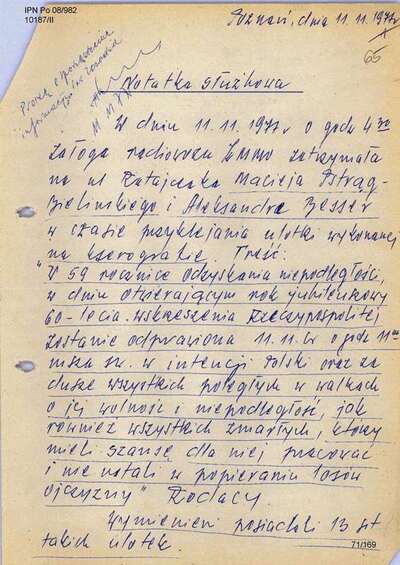 IPN Po 08/982
10187/II
Poznań, dnia 11.11.1977r
65
Proszę o
informację
Notatka służbowa
W dniu 11.11.1977 o godz 4 30
załoga radiowozu KMMO zatrzymała
na ul Ratajczaka Macieja Ostrąg-
Bzielinskiego i Aleksandra Besser
w czasie przyklejania ulotki wykonanej
na kserografie. Treść:
"W 59 rocznicę odzyskania niepodległości,
w dniu otwierającym rok jubileuszowy
60-lecia wskrzeszenia Rzeczypospolitej
zostanie odprawiona 11.11. br o godz 11 00
msza św. w intencji Polski oraz za
dusze wszystkich poległych w walkach
o jej wolność i niepodległość, jak
również wszystkich zmarłych, którzy
mieli szansę dla niej pracować
i nie ustali w popieraniu losów
ojczyzny" Rodacy.
Wymienieni posiadali 13 szt
takich ulotek.
71/169